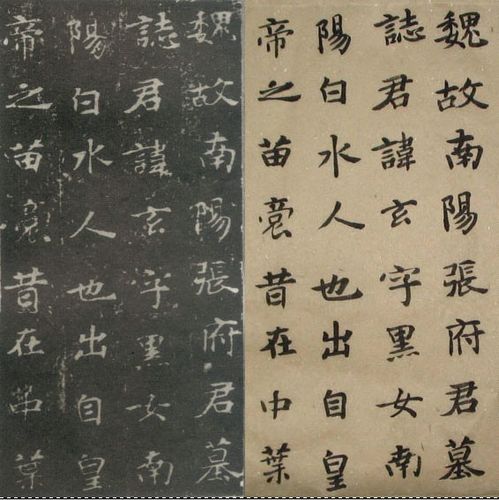 魏故南陽張府君墓
誌君諱玄字黑女南
陽白水人也出自皇
帝之苗裔昔在中葉
魏故南陽張府君墓
誌君諱玄字黑女南
陽白水人也出自皇
帝之苗裔昔在中葉